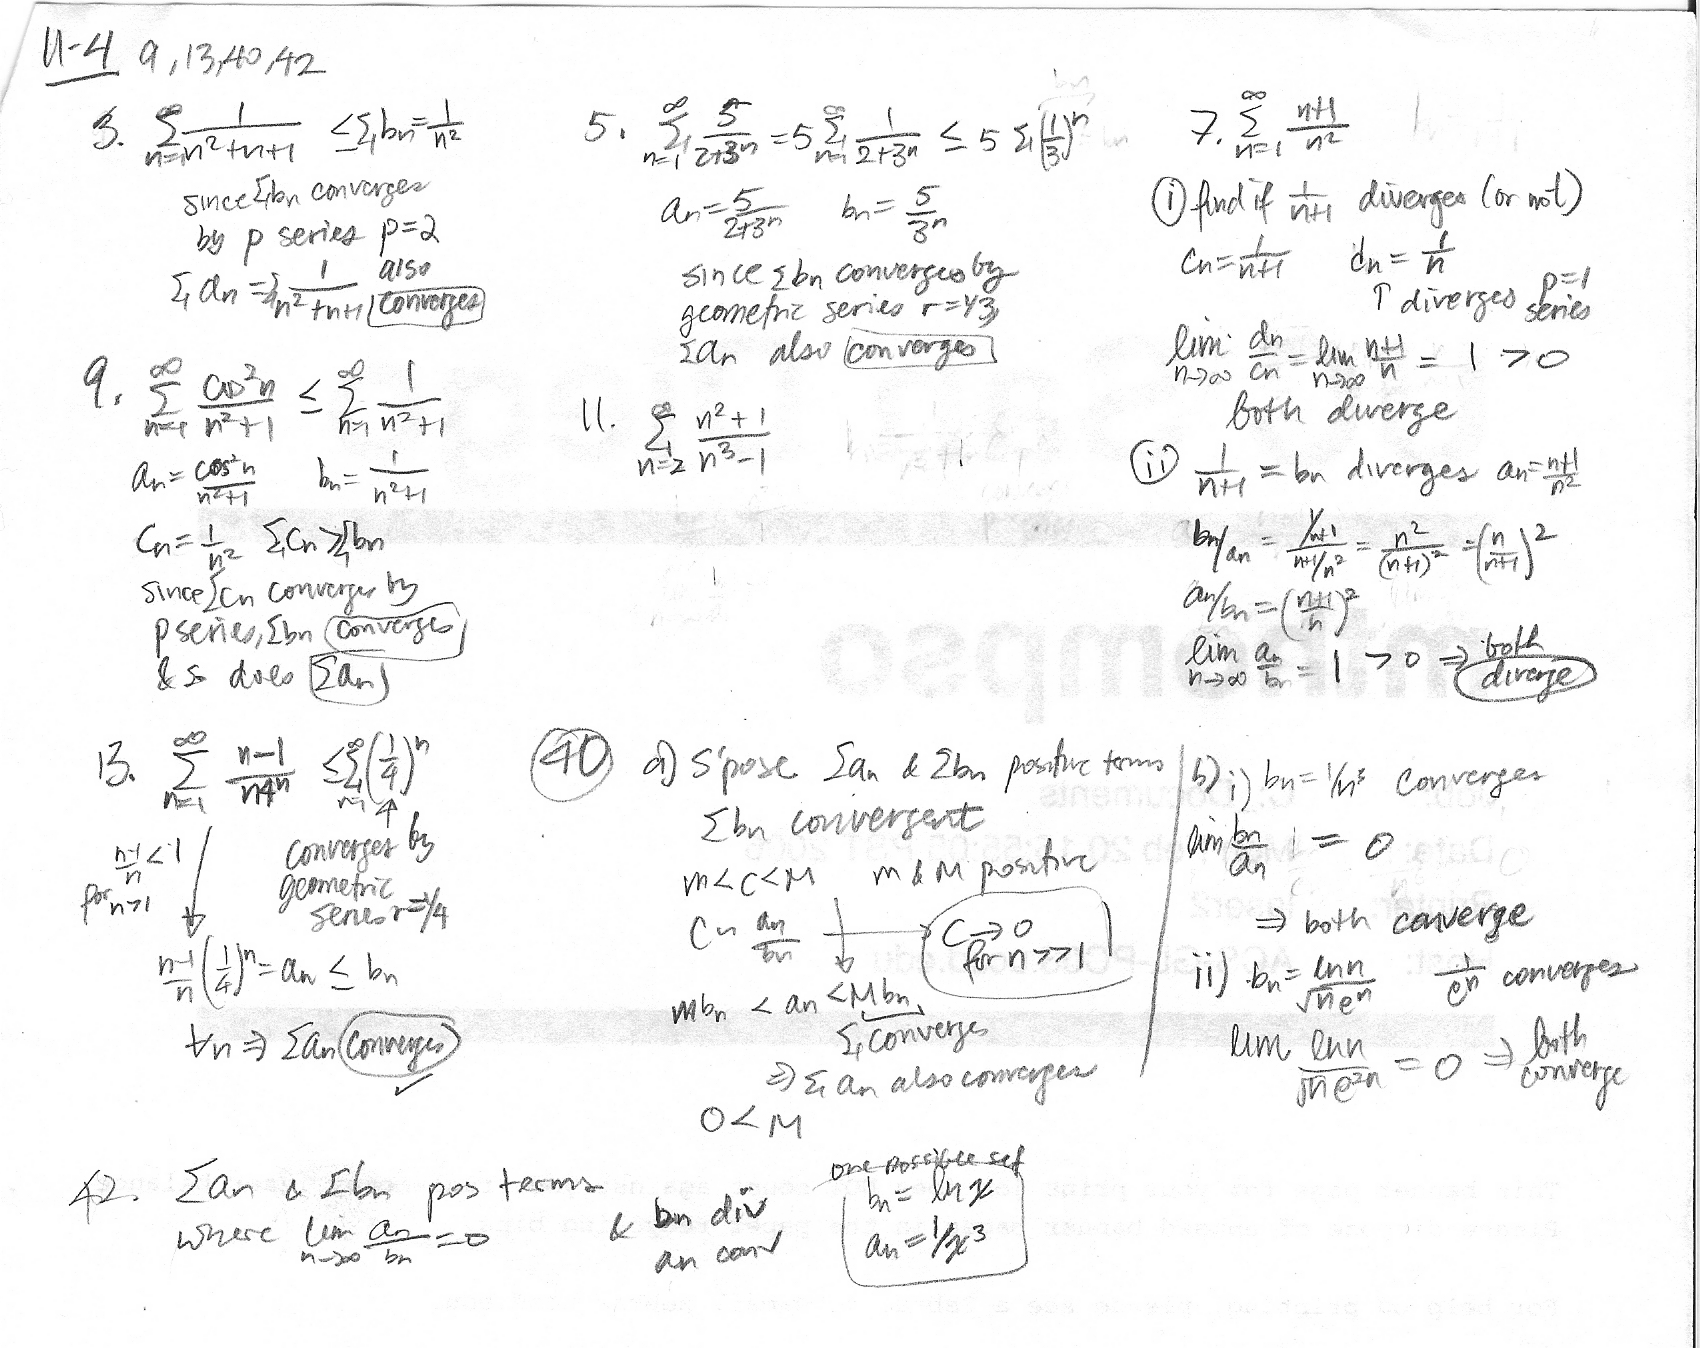 11-4 9, 13, 40, 42
3. ∑_{n=1}^∞ 1/(n²+n+1) ≤ ∑ bn = 1/n²
since ∑bn converges
by p series p=2
∑ an = ∑ 1/(n²+n+1) also converges
5. ∑_{n=1}^∞ 5/(2+3ⁿ) = 5 ∑_{n=1}^∞ 1/(2+3ⁿ) ≤ 5 ∑ (1/3)ⁿ
an = 5/(2+3ⁿ) bn = 5/3ⁿ
since ∑bn converges by
geometric series r=1/3,
∑an also converges
7. ∑_{n=1}^∞ (n+1)/n²
(i) find if 1/(n+1) diverges (or not)
cn = 1/(n+1) dn = 1/n
↑ diverges p=1 series
lim_{n→∞} dn/cn = lim_{n→∞} (n+1)/n = 1 > 0
both diverge
(ii) 1/(n+1) = bn diverges an = (n+1)/n²
bn/an = (1/(n+1))/((n+1)/n²) = n²/(n+1)² = (n/(n+1))²
an/bn = ((n+1)/n)²
lim_{n→∞} an/bn = 1 > 0 ⇒ both diverge
9. ∑_{n=1}^∞ cos²n/(n²+1) ≤ ∑_{n=1}^∞ 1/(n²+1)
an = cos²n/(n²+1) bn = 1/(n²+1)
Cn = 1/n² ∑Cn ≥ ∑bn
since ∑cn converges by
p series, ∑bn converges
& so does ∑an
11. ∑_{n=2}^∞ (n²+1)/(n³-1)
13. ∑_{n=1}^∞ (n-1)/(n4ⁿ) ≤ ∑_{n=1}^∞ (1/4)ⁿ
(n-1)/n < 1
for n>1
converges by
geometric
series r=1/4
(n-1)/n (1/4)ⁿ = an ≤ bn
∀n ⇒ ∑an converges
✓
40 a) S'pose ∑an & ∑bn positive terms
∑bn convergent
m<c<M m & M positive
C ~ an/bn
C→0
for n>>1
mbn < an < Mbn
∑ converges
⇒ ∑ an also converges
0 < M
b) i) bn = 1/n³ converges
lim bn/an = 0
⇒ both converge
ii) bn = ln n/(√n eⁿ) 1/eⁿ converges
lim ln n/(√n e²ⁿ) = 0 ⇒ both converge
42. ∑an & ∑bn pos terms
where lim_{n→∞} an/bn = 0
& bn div
an conv
one possible set
bn = ln x
an = 1/x³